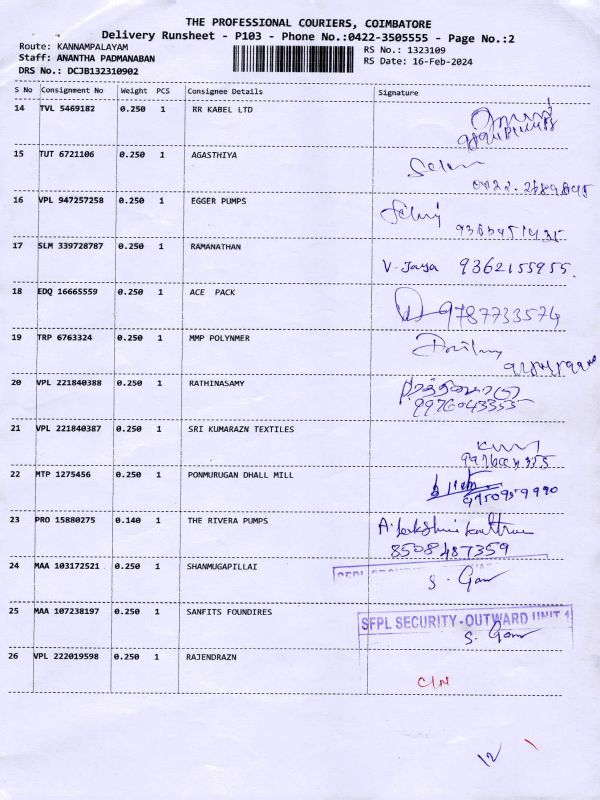 THE PROFESSIONAL COURIERS, COIMBATORE
Delivery Runsheet - P103 - Phone No.:0422-3505555 - Page No.:2
Route: KANNAMPALAYAM RS No.: 1323109
Staff: ANANTHA PADMANABAN RS Date: 16-Feb-2024
DRS No.: DCJB132310902
S No Consignment No Weight PCS Consignee Details Signature
14 TVL 5469182 0.250 1 RR KABEL LTD
15 TUT 6721106 0.250 1 AGASTHIYA
16 VPL 947257258 0.250 1 EGGER PUMPS
17 SLM 339728787 0.250 1 RAMANATHAN
V. Jaya 9362155955.
18 EDQ 16665559 0.250 1 ACE PACK
9787733574
19 TRP 6763324 0.250 1 MMP POLYNMER
20 VPL 221840388 0.250 1 RATHINASAMY
9976043355
21 VPL 221840387 0.250 1 SRI KUMARAZN TEXTILES
22 MTP 1275456 0.250 1 PONMURUGAN DHALL MILL
9750959990
23 PRO 15880275 0.140 1 THE RIVERA PUMPS
8508487359
24 MAA 103172521 0.250 1 SHANMUGAPILLAI
25 MAA 107238197 0.250 1 SANFITS FOUNDIRES
SFPL SECURITY-OUTWARD UNIT 1
26 VPL 222019598 0.250 1 RAJENDRAZN
C/N
12